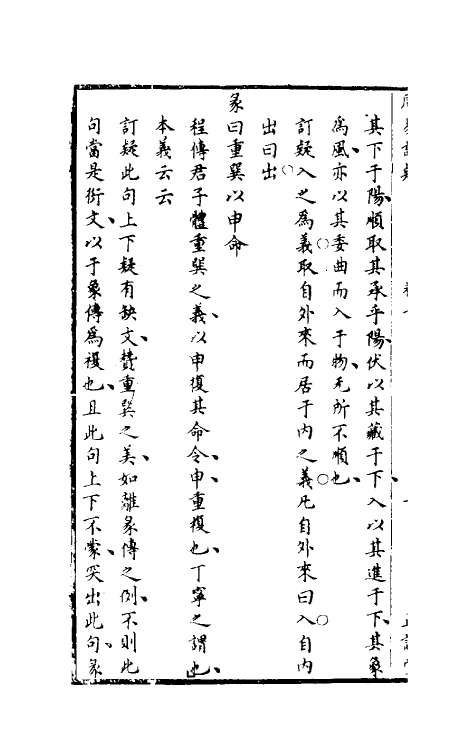 其下于陽順取其承乎陽伏以其藏于下入以其進于下其象
爲風亦以其委曲而入于物无所不順也
訂疑入之爲義取自外來而居于内之義凡自外來曰入自内
出曰出
彖曰重巽以申命
程傳君子體重巽之義以申復其命令申重複也丁寧之謂也
本義云云
訂疑此句上下疑有缺文賛重巽之美如離彖傳之例不則此
句當是衍文以于象傳爲複也且此句上下不蒙突出此句彖